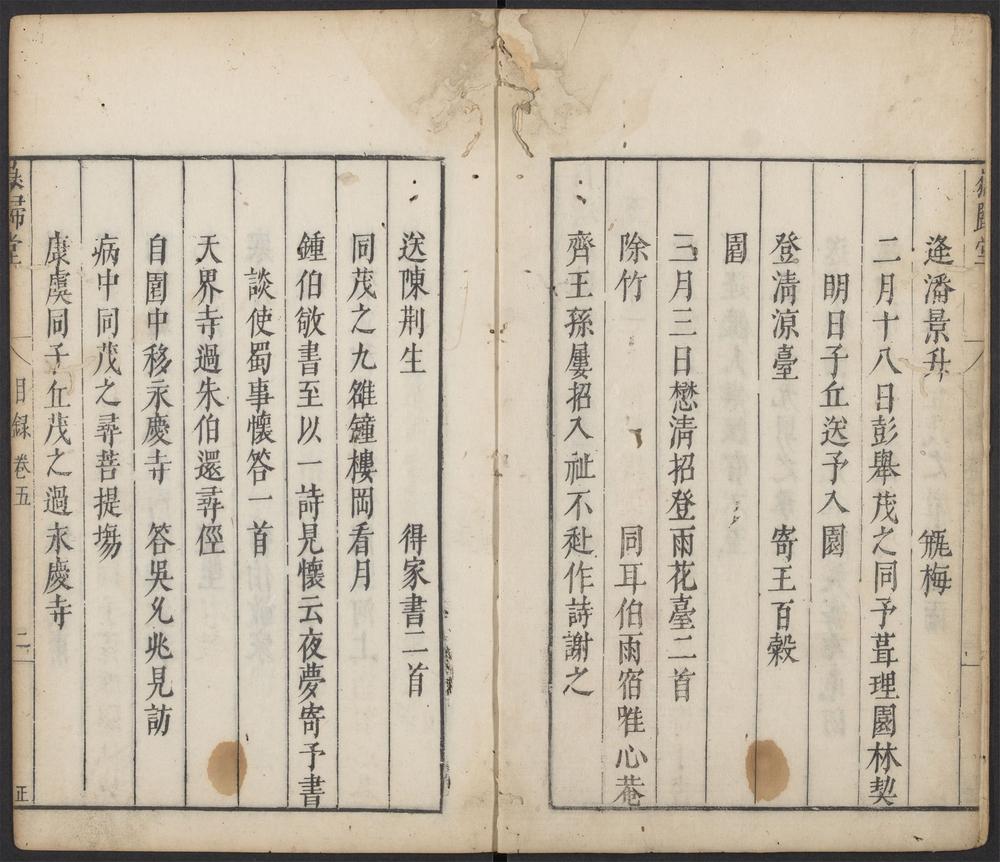 逢潘景升　甁梅
二月十八日彭舉茂之同予葺理園林契
明日子丘送予入園
登淸凉臺　寄王百穀
園
三月三日懋淸招登雨花臺二首
除竹　同耳伯雨宿唯心菴
齊王孫屢招入社不赴作詩謝之
送陳荆生　得家書二首
同茂之九雒鐘樓岡看月
鍾伯敬書至以一詩見懷云夜夢寄予書
談使蜀事懷答一首
天界寺過朱伯還尋徑
自園中移永慶寺　答吳凡兆見訪
病中同茂之尋菩提塲
康虞同子丘茂之過永慶寺
歸堂　目錄卷五　二　正